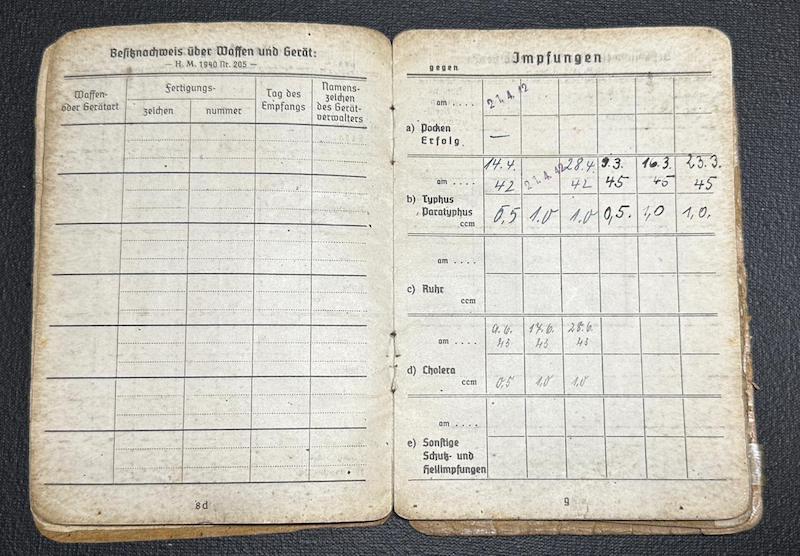 Besitznachweis über Waffen und Gerät:
— H. M. 1940 Nr. 205 —
Waffen- oder Gerätart
Fertigungs-
zeichen
nummer
Tag des Empfangs
Namens- zeichen des Gerät- verwalters
8d
Impfungen
gegen
am . . . . 21.4.42
a) Pocken
Erfolg —
14.4. 28.4. 9.3. 16.3. 23.3.
am . . . . 42 21.4.42 42 45 45 45
b) Typhus
Paratyphus 0,5 1.0 1.0 0,5. 1,0 1,0.
ccm
am . . . .
c) Ruhr
ccm
17.6. 28.6.
am . . . . 43 43 43
d) Cholera
ccm 0,5 1,0 1,0
am . . . .
e) Sonstige
Schutz- und
Heilimpfungen
9